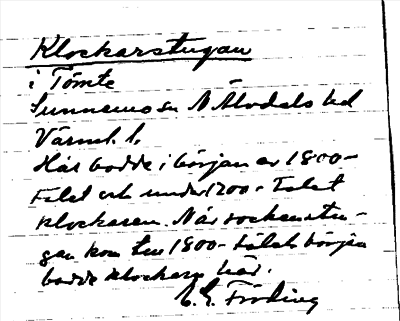 Klockarstugan
i Tömte
Sunnemo sn N Älvdals hd
Värml. l.
Här bodde i början av 1800-
talet och under 1700-talet
klockaren. När sockenstu-
gan kom till 1800-talets början
bodde klockaren här.
E. G. Fröding